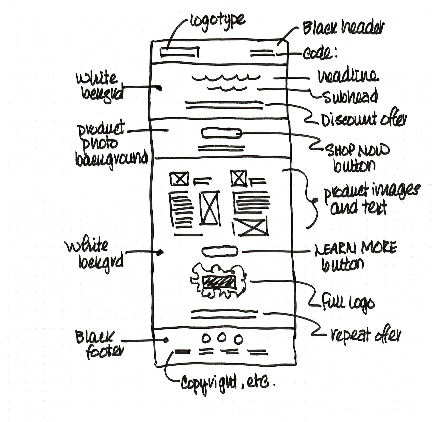 logotype
Black header
code:
White
bckgrd
headline
Subhead
Discount offer
product
photo
background
SHOP NOW
button
product images
and text
White
bckgrd
LEARN MORE
button
full logo
repeat offer
Black
footer
copyright, etc.